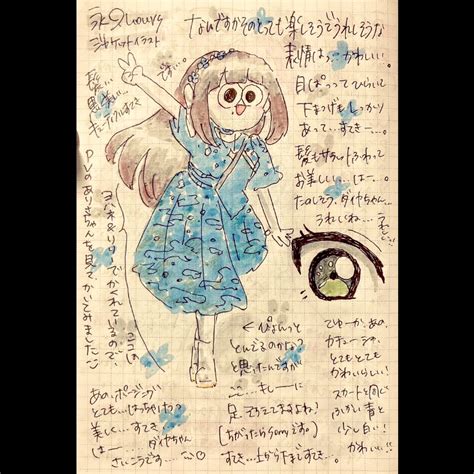 永久hours
ジャケットイラスト
なんですかそのとっても楽しそうでうれしそうな
表情はぁ…かわいい…
です…♡
目ぱっってひらいて
下まつげもしっかり
あって…すてきー…。
髪もサラッとふわって
お美しい…はー…。
たのしそう、ダイヤちゃん…
うれしいね…
髪…
美しい…
キューティクルすてき
PVのありさちゃんを見て、かいてみました
ヨハネ&リリーでかくれているので、
ココは
← ぴょんっと
とんでるのかな?
と思ったんですが
…きしーに
足そろえてますよね!
(ちがったらsorryです。)
すてき…上から下まですてき…
あのポージング
とても…はっちゃけ?て
美しく…すてき
はー…ダイヤちゃん
さいこうです…♡
てゆーか、あの、
カチューシャ、
とてもとても
かわいらしい!
スカートと同じ
ふかい青と
少し白!
かわいい!!